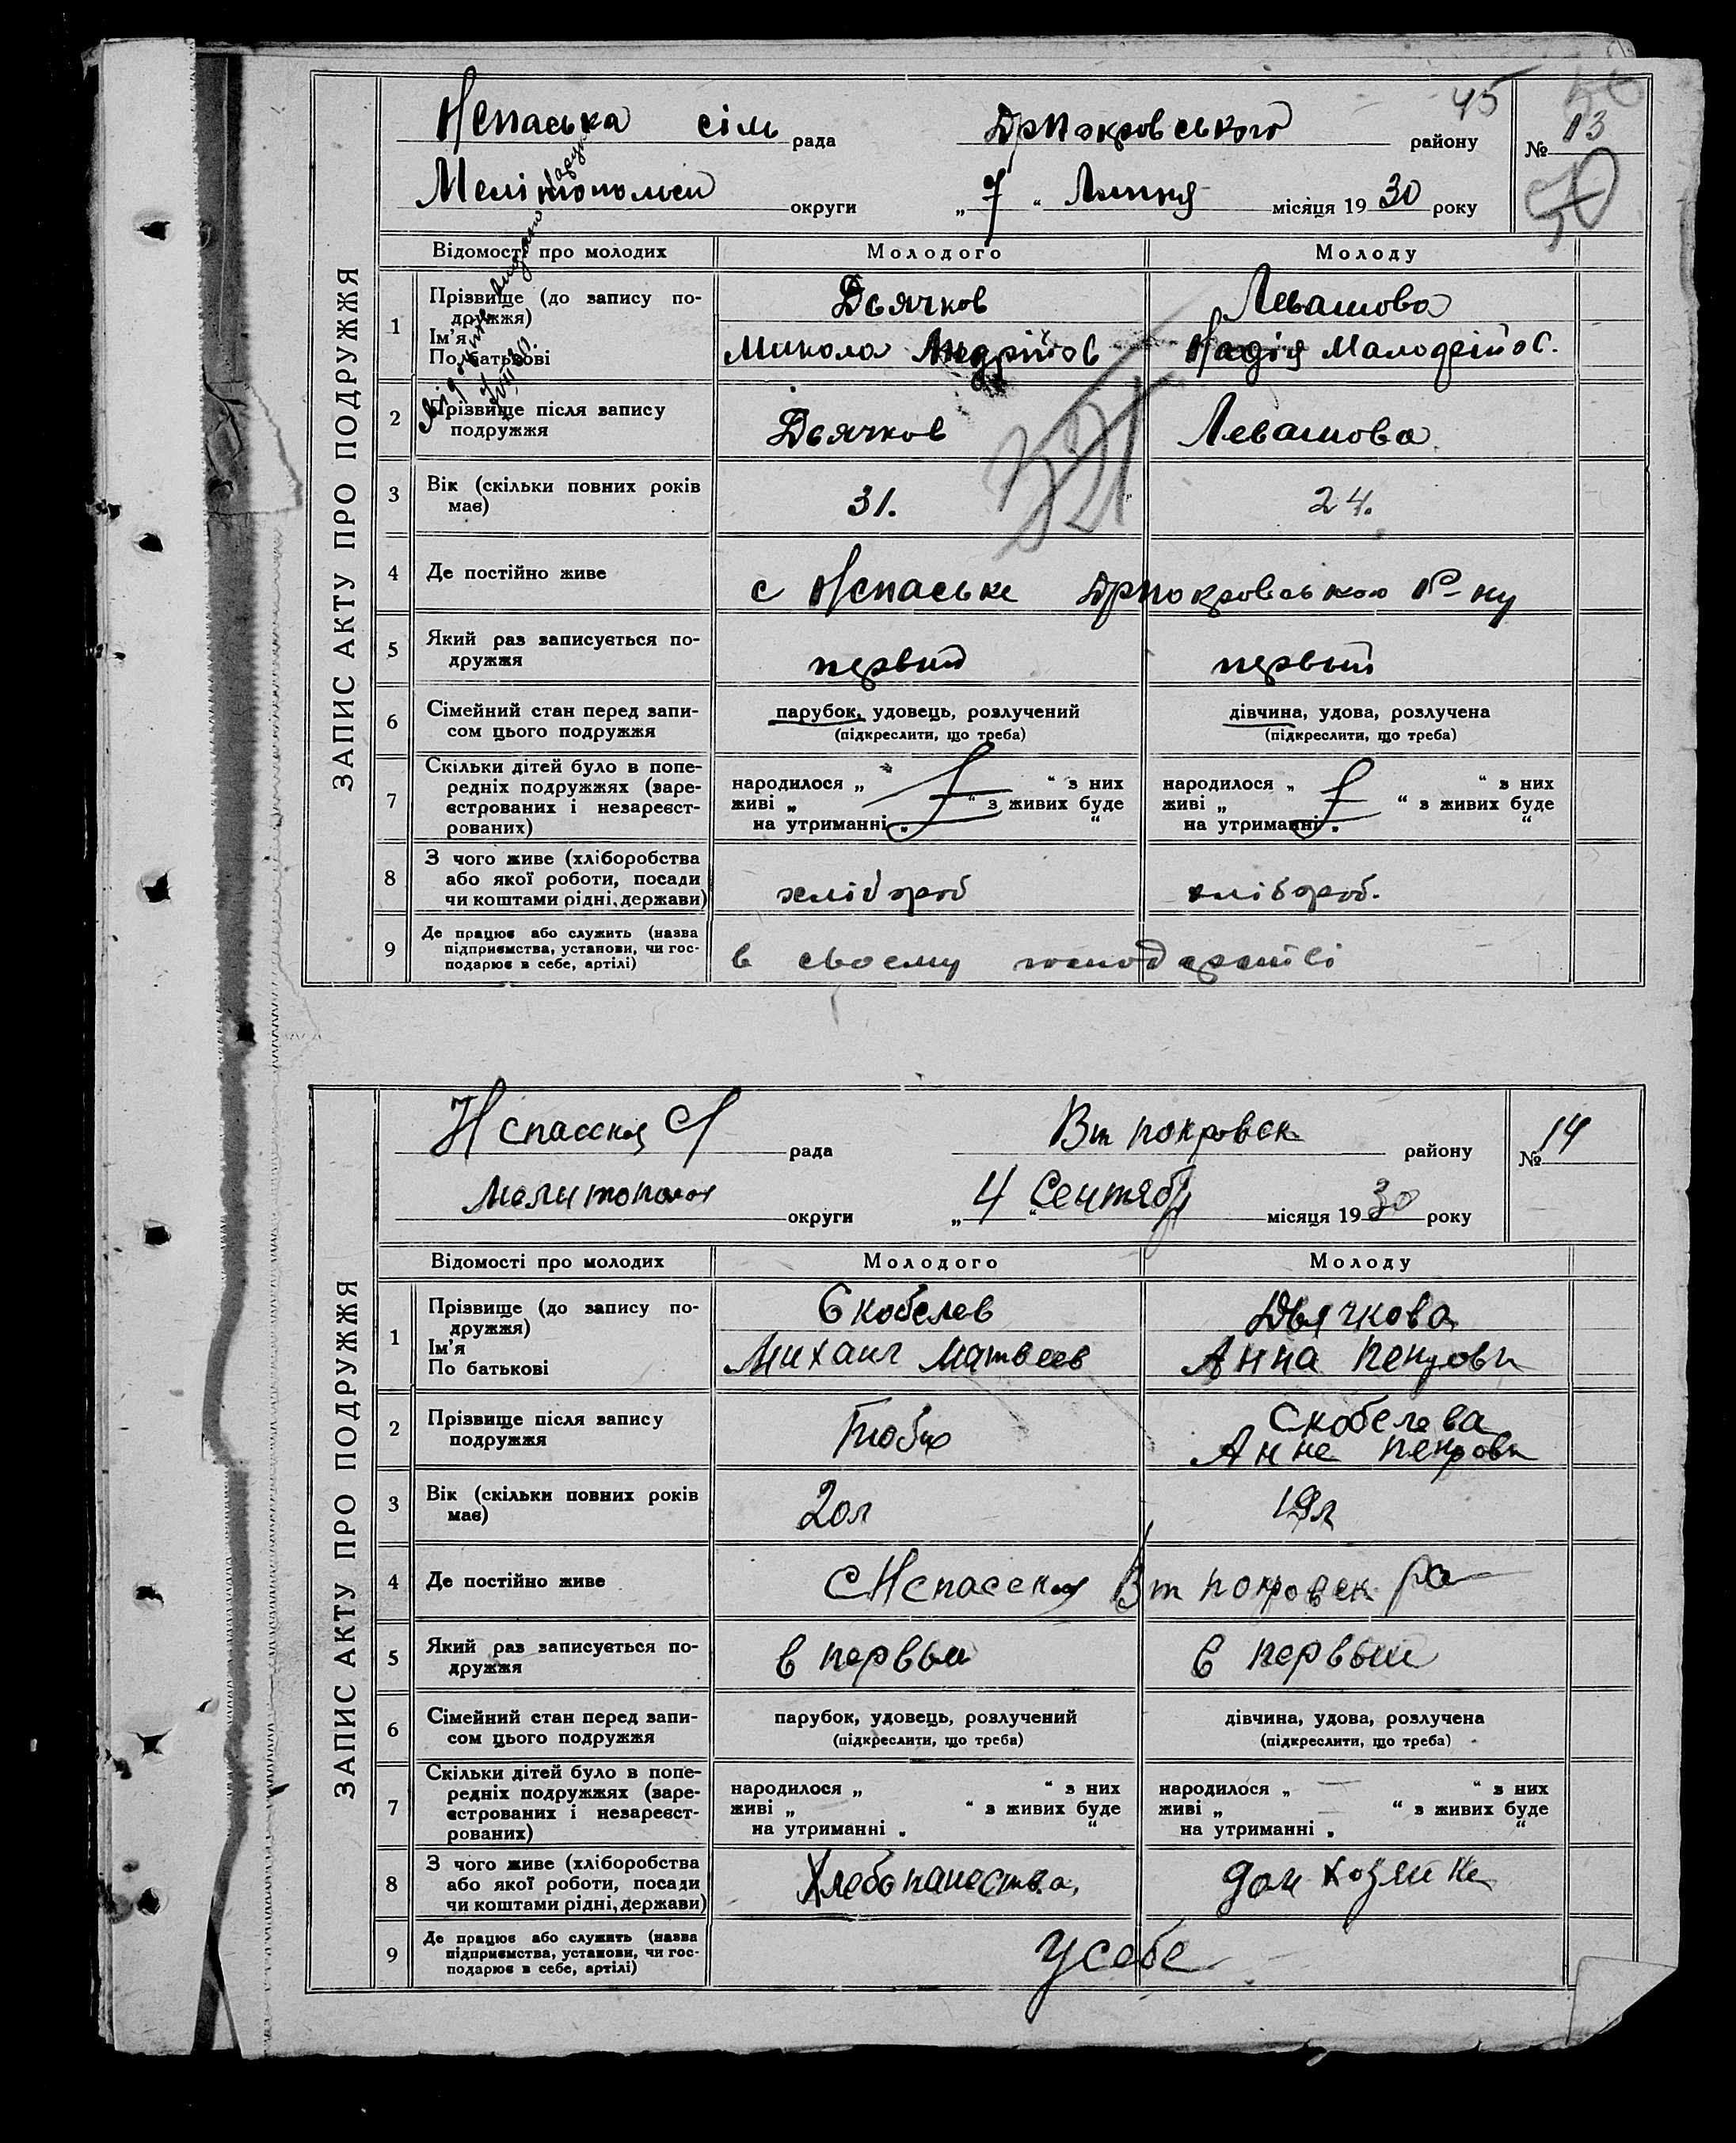 45
Нспаська сіль рада Дрпокровського району № 13
50
Мелітопольск округи „ 7 “ Липня місяця 19 30 року
ЗАПИС АКТУ ПРО ПОДРУЖЖЯ
Відомості про молодих Молодого Молоду
1 Прізвище (до запису по-
дружжя)
Ім'я
По батькові
Дьячков Левашова
Микола Андрійов Надія
2 Прізвище після запису
подружжя
Дьячков Левашова
3 Вік (скільки повних років
має)
31. 24.
4 Де постійно живе
с Нспаське Дрпокровського Р-ну
5 Який раз записується по-
дружжя
первый первый
6 Сімейний стан перед запи-
сом цього подружжя
парубок, удовець, розлучений дівчина, удова, розлучена
(підкреслити, що треба) (підкреслити, що треба)
7 Скільки дітей було в попе-
редніх подружжях (заре-
єстрованих і незареєст-
рованих)
народилося „ “ з них народилося „ “ з них
живі „ “ з живих буде живі „ “ з живих буде
на утриманні „ “ на утриманні „ “
8 З чого живе (хліборобства
або якої роботи, посади
чи коштами рідні, держави)
хлібороб хлібороб.
9 Де працює або служить (назва
підприємства, установи, чи гос-
подарює в себе, артілі)
в своему господарстві
Нспасская С рада Вт покровск району № 14
Мелитополя округи „ 4 “ Сентября місяця 19 30 року
ЗАПИС АКТУ ПРО ПОДРУЖЖЯ
Відомості про молодих Молодого Молоду
1 Прізвище (до запису по-
дружжя)
Ім'я
По батькові
Скобелев Дьячкова
Михаил Матвеев Анна Петровн
2 Прізвище після запису
подружжя
Скобелева
Анне Петровн
3 Вік (скільки повних років
має)
20л 19л
4 Де постійно живе
с Нспасская Вт покровск ра
5 Який раз записується по-
дружжя
в первый в первый
6 Сімейний стан перед запи-
сом цього подружжя
парубок, удовець, розлучений дівчина, удова, розлучена
(підкреслити, що треба) (підкреслити, що треба)
7 Скільки дітей було в попе-
редніх подружжях (заре-
єстрованих і незареєст-
рованих)
народилося „ “ з них народилося „ “ з них
живі „ “ з живих буде живі „ “ з живих буде
на утриманні „ “ на утриманні „ “
8 З чого живе (хліборобства
або якої роботи, посади
чи коштами рідні, держави)
Хлебопашества, дом хозяйке
9 Де працює або служить (назва
підприємства, установи, чи гос-
подарює в себе, артілі)
У себе